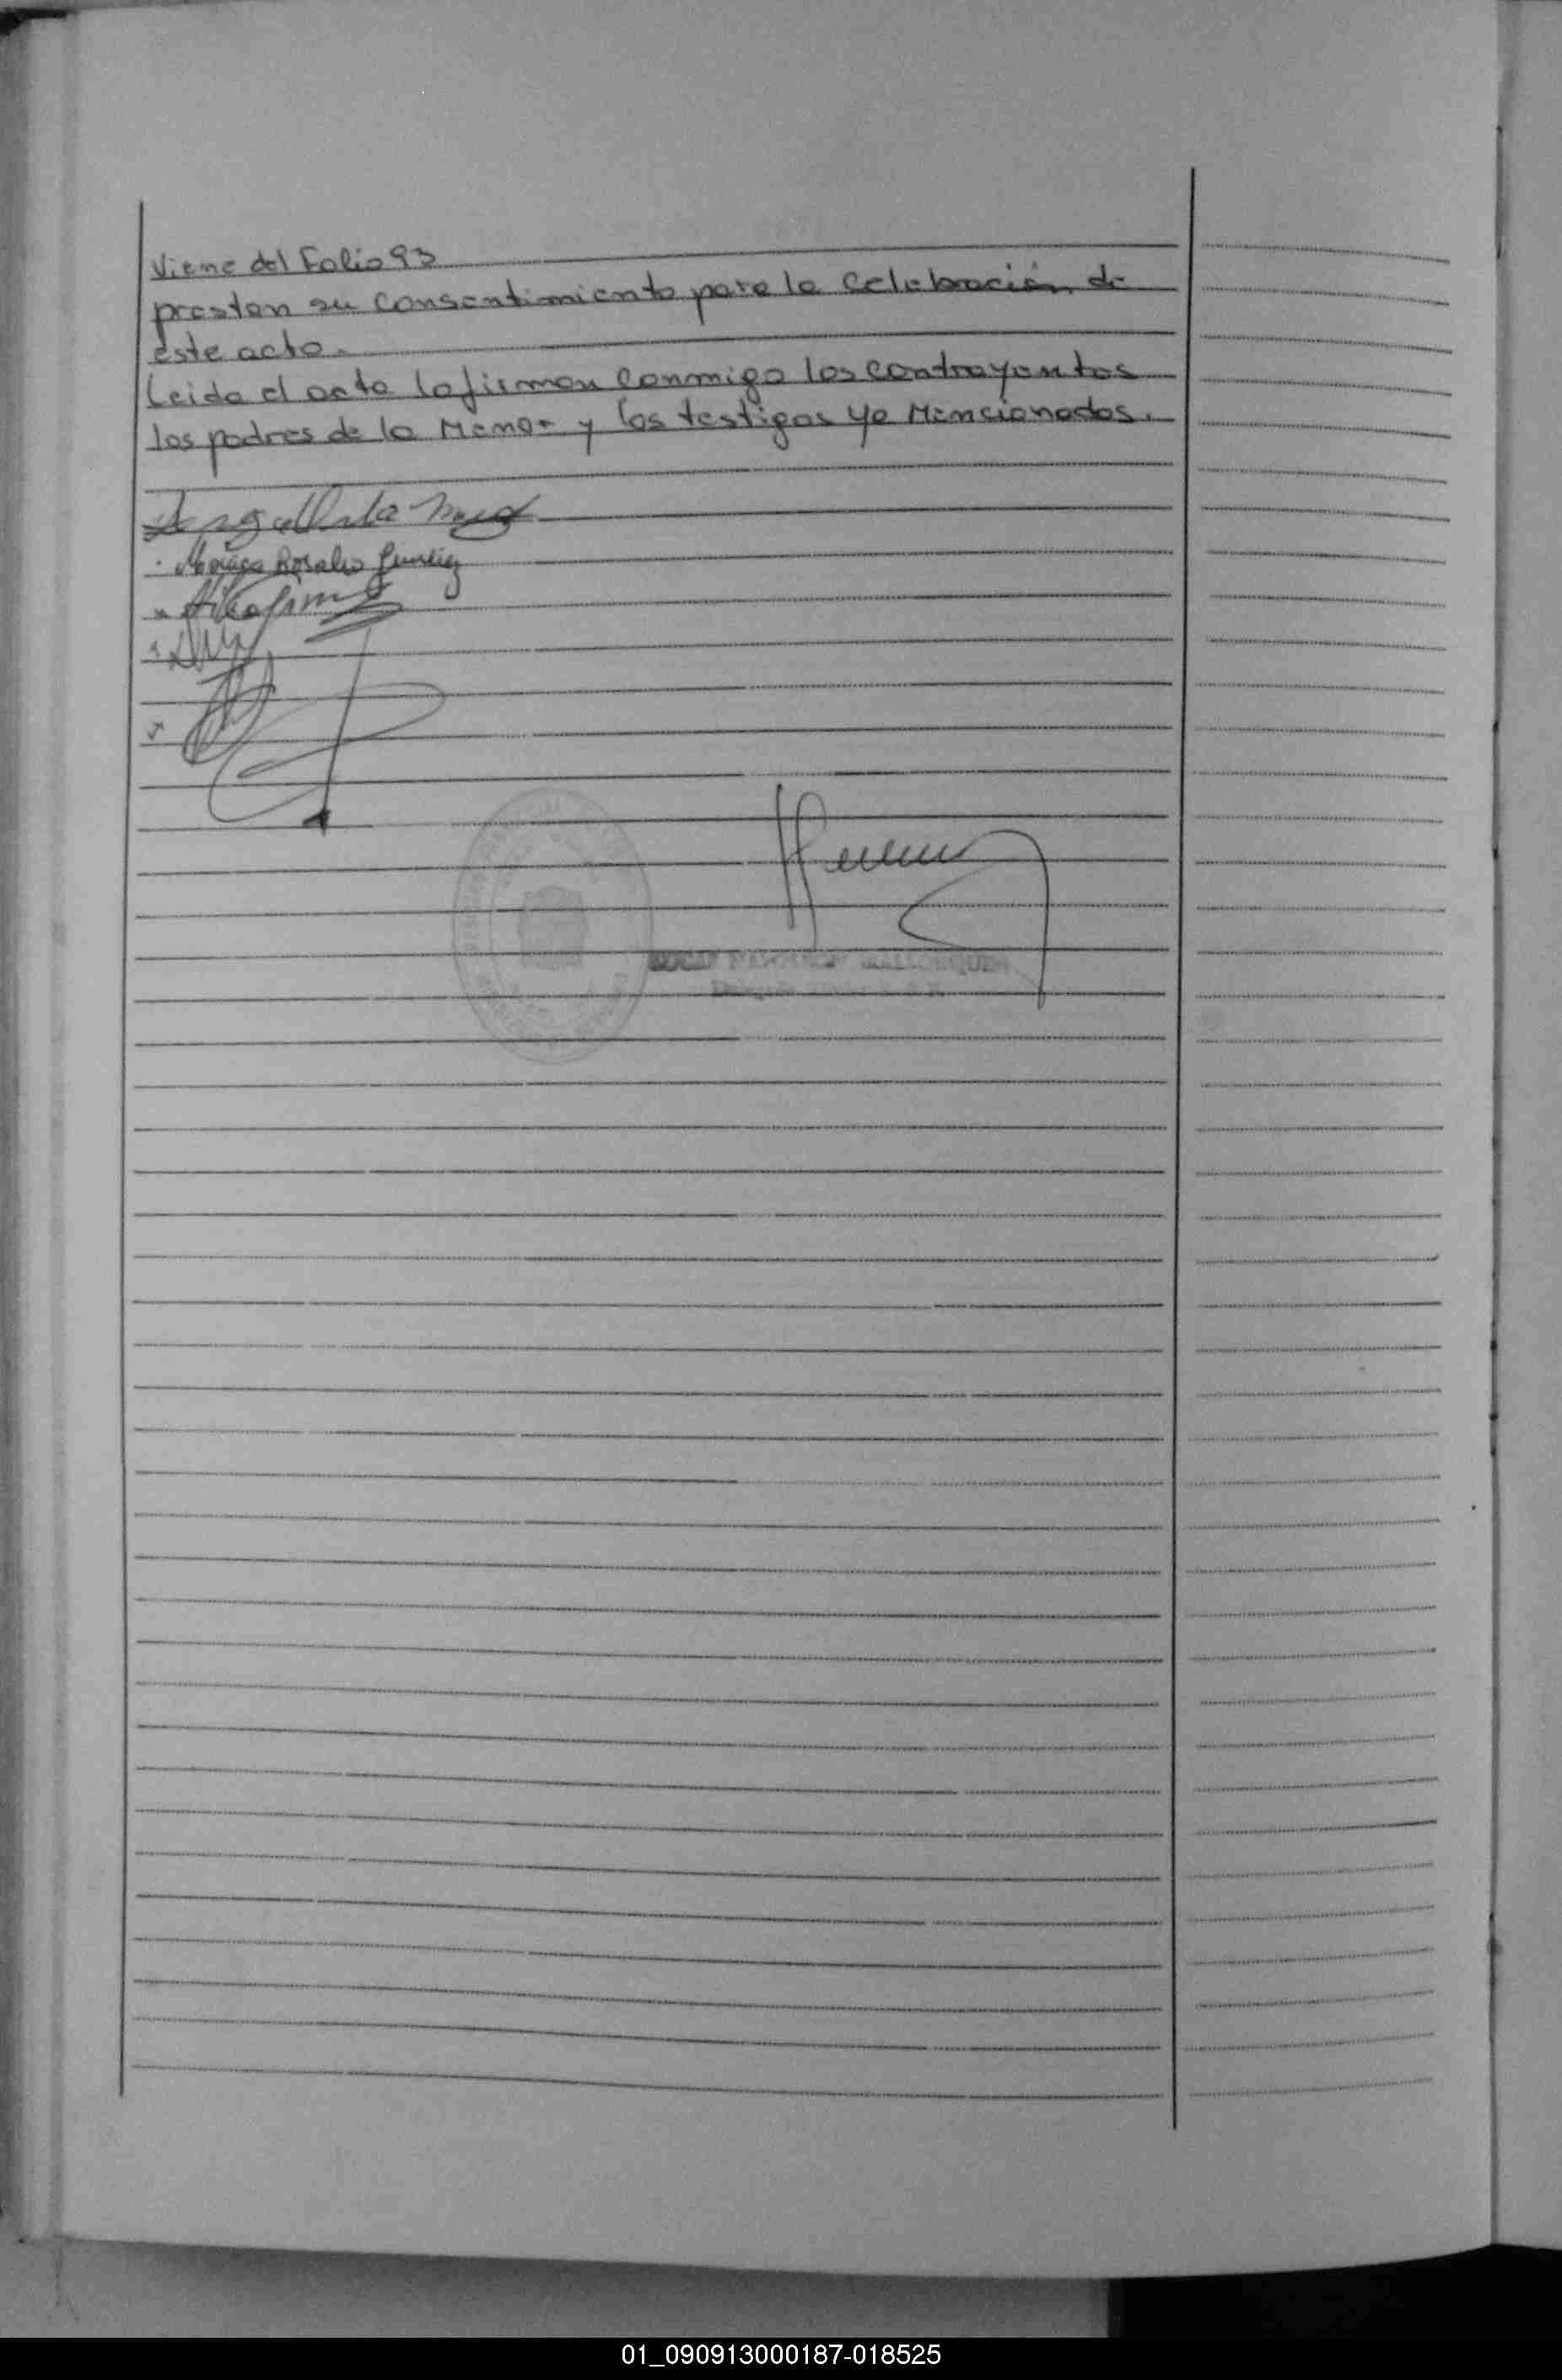 Viene del Folio 93
prestan su consentimiento para la celebración de
este acto.
Leida el acta la firman conmigo los contrayentes
los padres de la Menor y los testigos ya Mencionados.
Rosalia
01_090913000187-018525